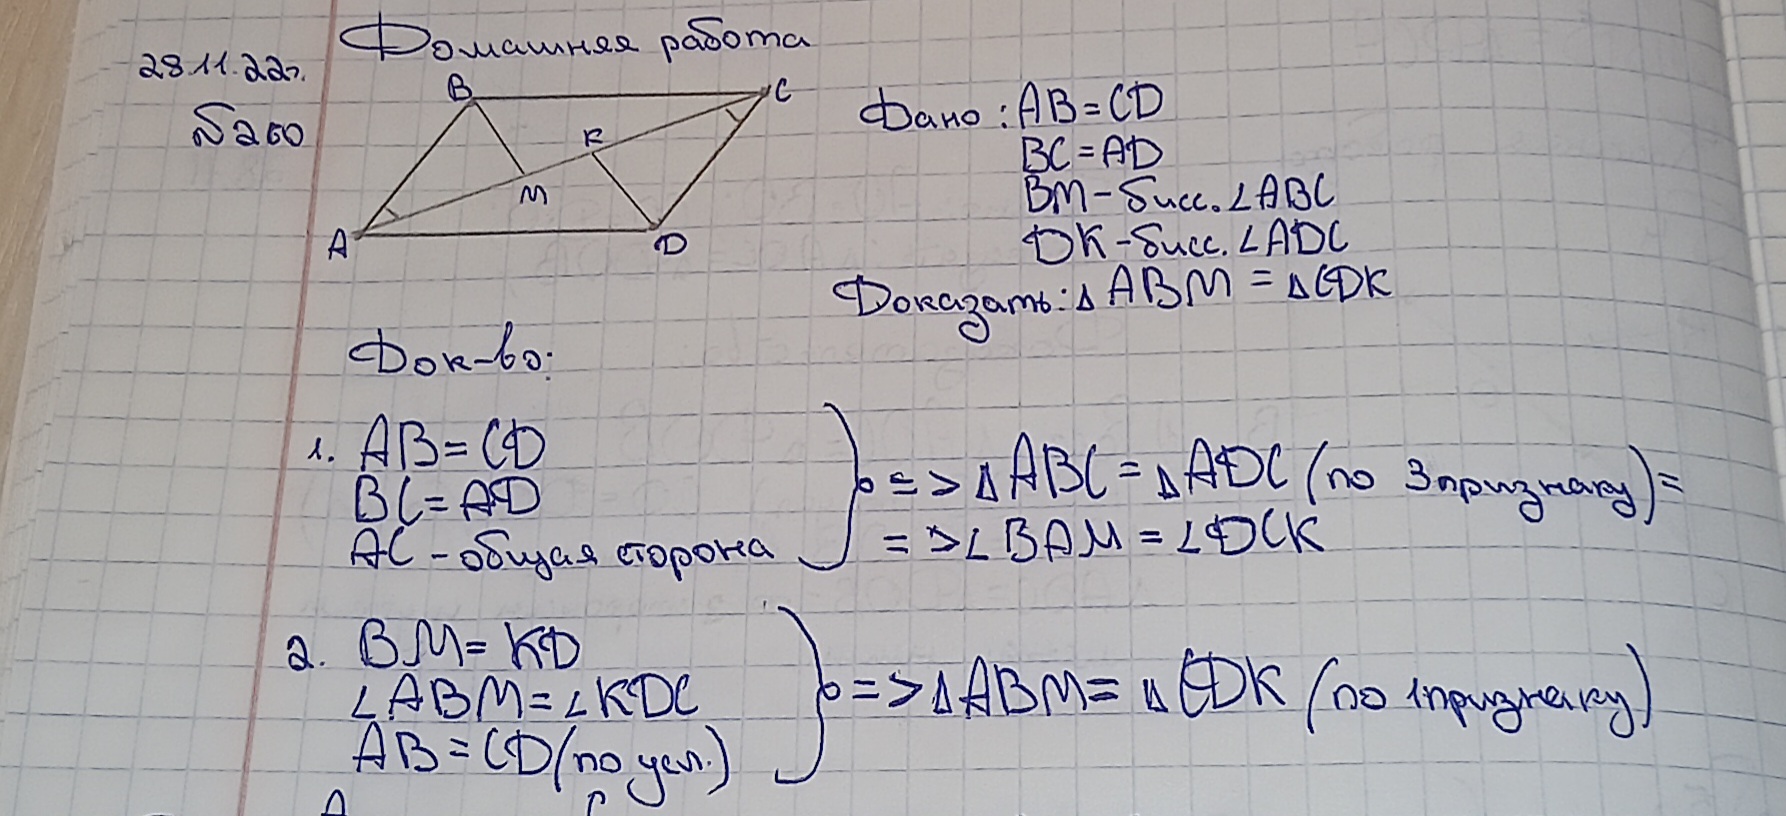 Домашняя работа
28.11.22г.
№260
B
C
K
M
A
D
Дано: AB=CD
BC=AD
BM-бисс.∠ABC
DK-бисс.∠ADC
Доказать:△ABM=△CDK
Док-во:
1. AB=CD
BC=AD
AC-общая сторона
=>△ABC=△ADC (по 3признаку)=
=>∠BAM=∠DCK
2. BM=KD
∠ABM=∠KDC
AB=CD(по усл.)
=>△ABM=△CDK (по 1признаку)